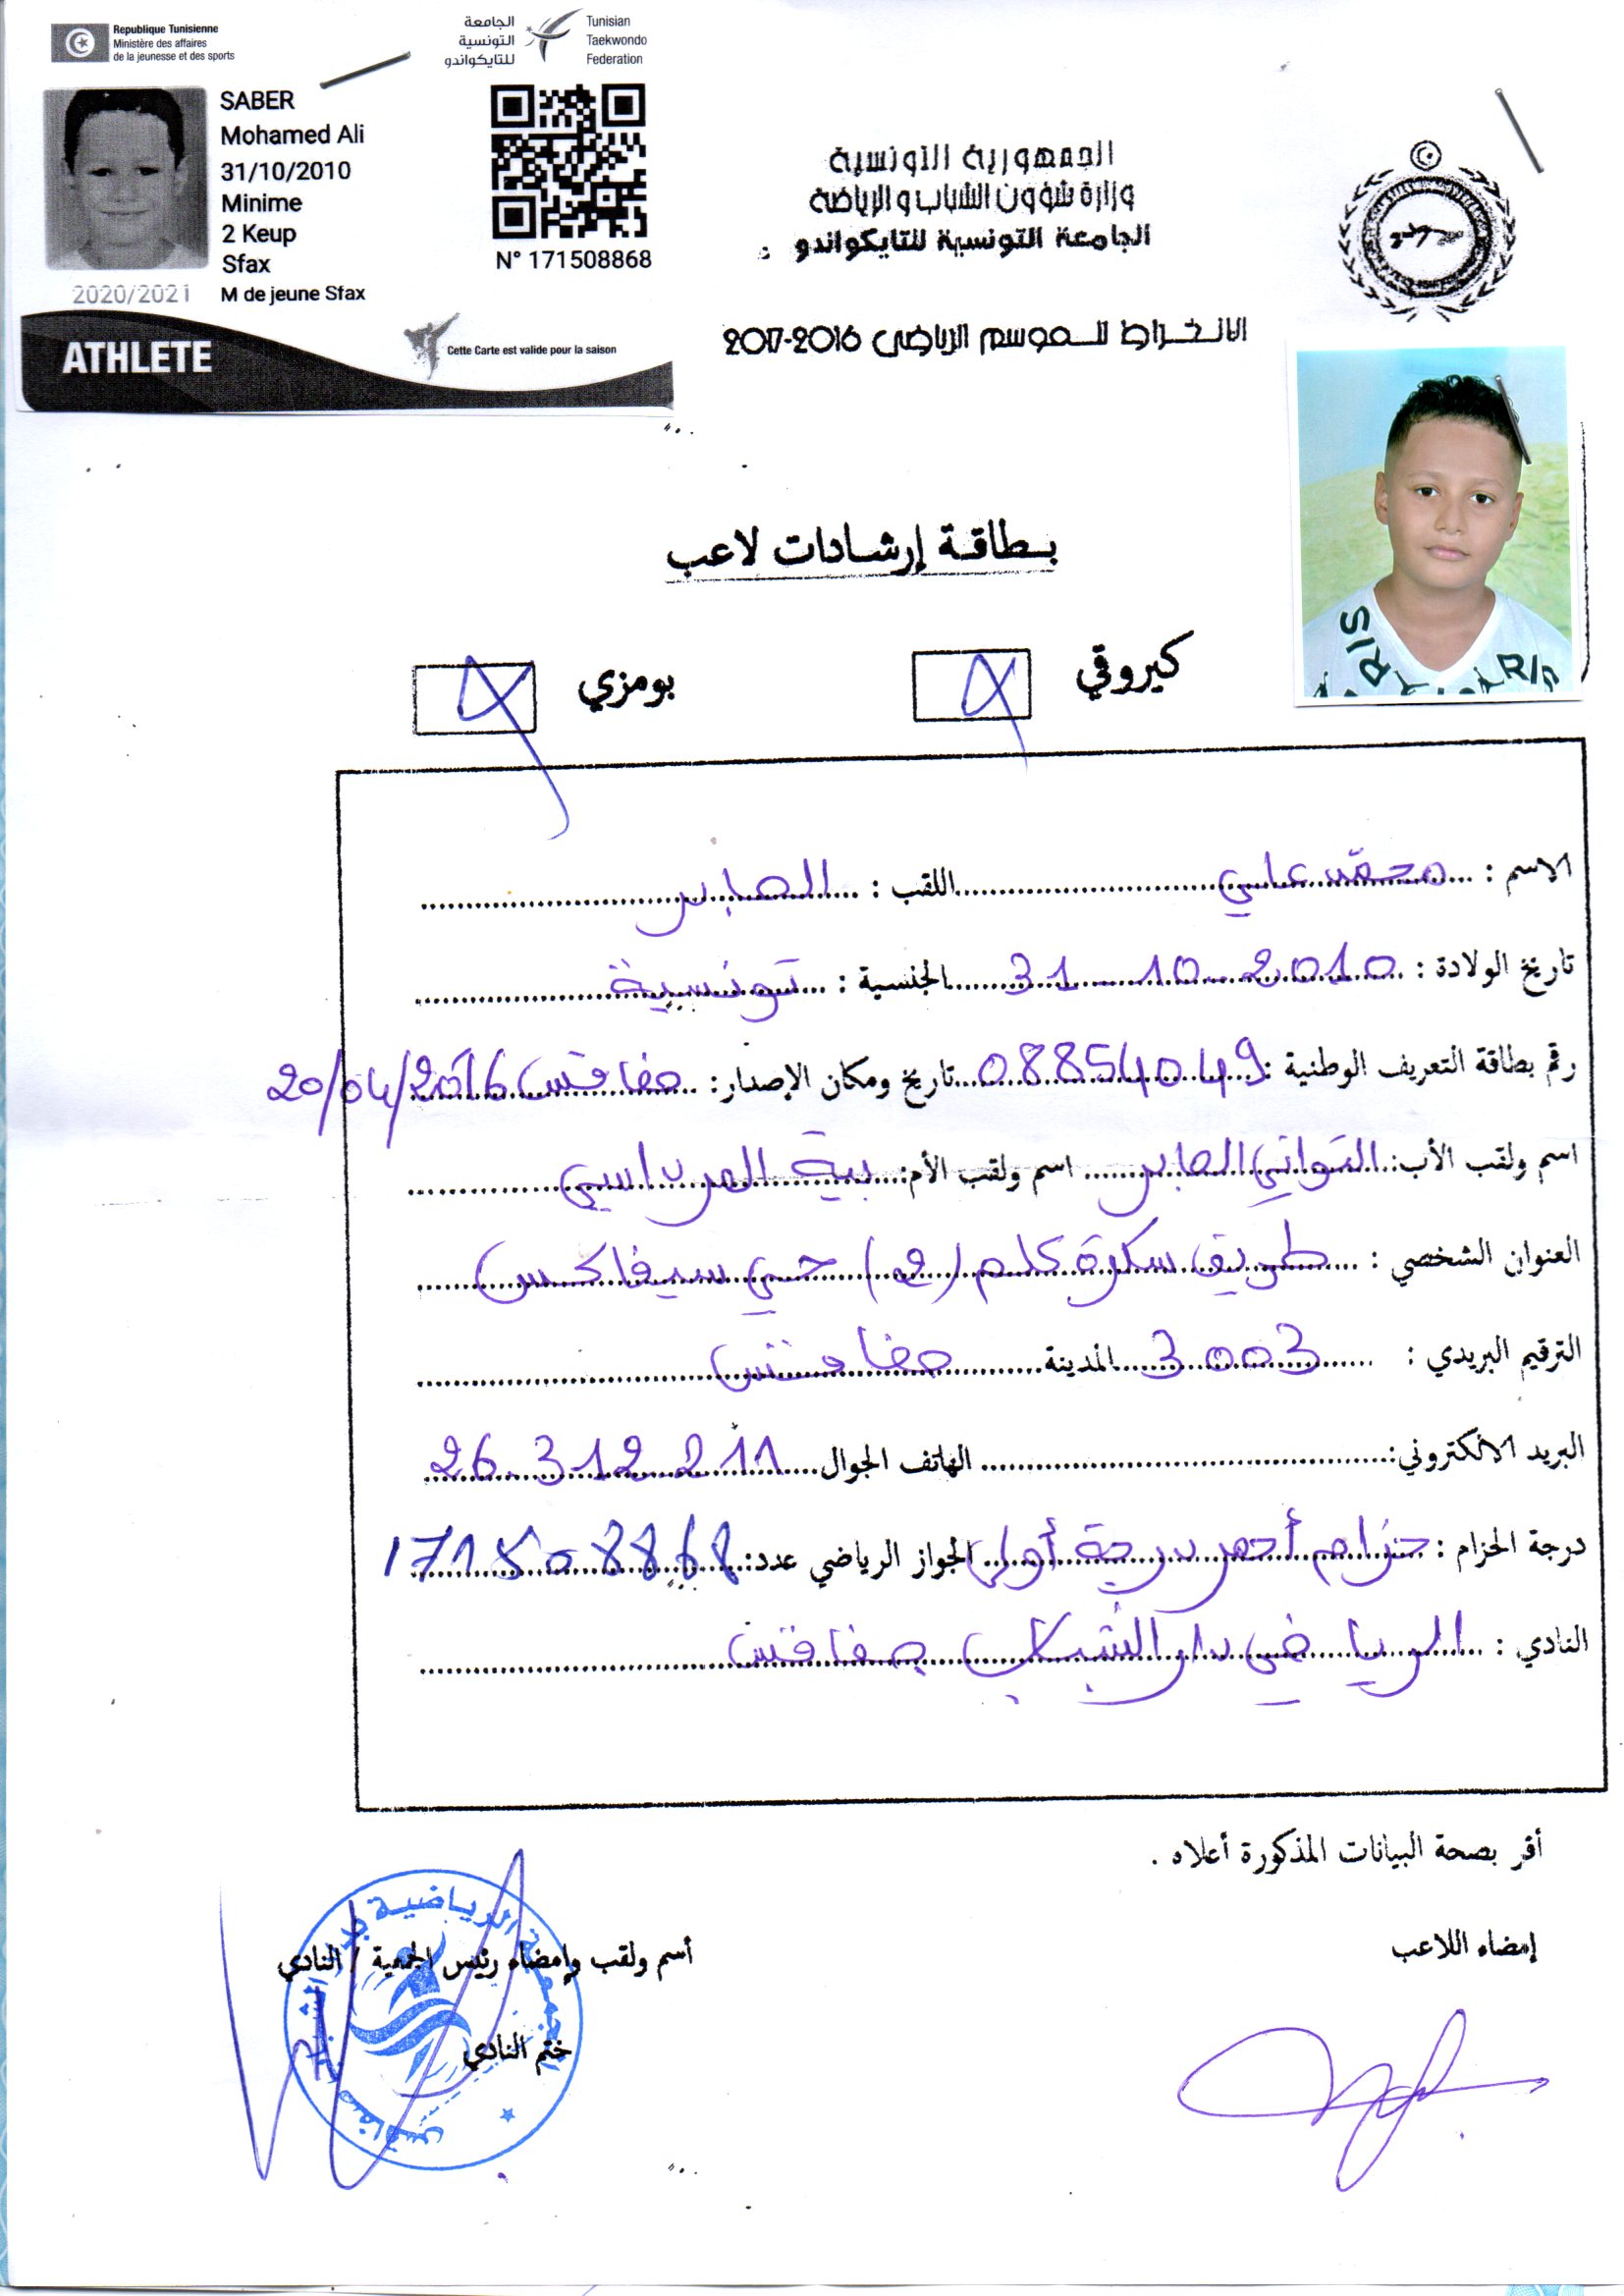 Republique Tunisienne
Ministère des affaires
de la jeunesse et des sports
الجامعة
التونسية
للتايكواندو
Tunisian
Taekwondo
Federation
SABER
Mohamed Ali
31/10/2010
Minime
2 Keup
Sfax
M de jeune Sfax
2020/2021
N° 171508868
ATHLETE
Cette Carte est valide pour la saison
الجمهورية التونسية
وزارة شؤون الشباب والرياضة
الجامعة التونسية للتايكواندو
الانخراط للموسم الرياضي 2016-2017
بطاقة إرشادات لاعب
كيروقي بومزي
الاسم : محمد علي اللقب : الصابر
تاريخ الولادة : 31-10-2010 الجنسية : تونسية
رقم بطاقة التعريف الوطنية : 08854049 تاريخ ومكان الإصدار: صفاقس 20/04/2016
اسم ولقب الأب: التواتي الصابر اسم ولقب الأم: بية المرداسي
العنوان الشخصي : طريق سكرة كلم (2) حي سيفاكس
الترقيم البريدي : 3003 المدينة صفاقس
البريد الالكتروني: الهاتف الجوال 26.312.211
درجة الحزام : حزام أحمر درجة أولى الجواز الرياضي عدد: 171508868
النادي : الرياضي دار الشباب صفاقس
أقر بصحة البيانات المذكورة أعلاه .
إمضاء اللاعب
أسم ولقب وإمضاء رئيس الجمعية / النادي
ختم النادي